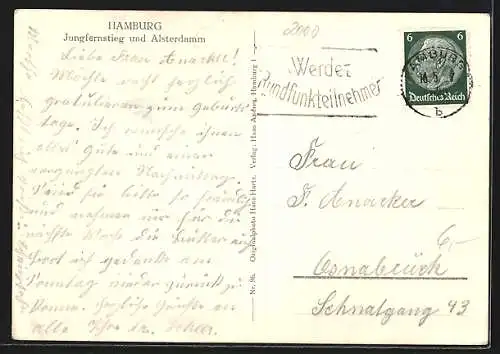 HAMBURG
Jungfernstieg und Alsterdamm
2000
Liebe Frau Anacker!
Möchte recht herzlich
gratulieren zum Geburts
tage. Ich wünsche ihnen
alles Gute und einen
vergnügten Nachmittag.
Sind sie bitte so freundlich
und nehmen mir für die
nächste Woche die
Fort ich gedenke am
Sonntag wieder zurück zu
komme. Herzliche Grüße an
alle Ihre
Nr. 86. Originalphoto Hans Hartz. Verlag: Hans Andres, Hamburg 1
Werdet
Rundfunkteilnehmer
HAMBURG
b
6 6
Deutsches Reich
Frau
F. Anacker
6,-
Osnabrück
Schnatgang 43